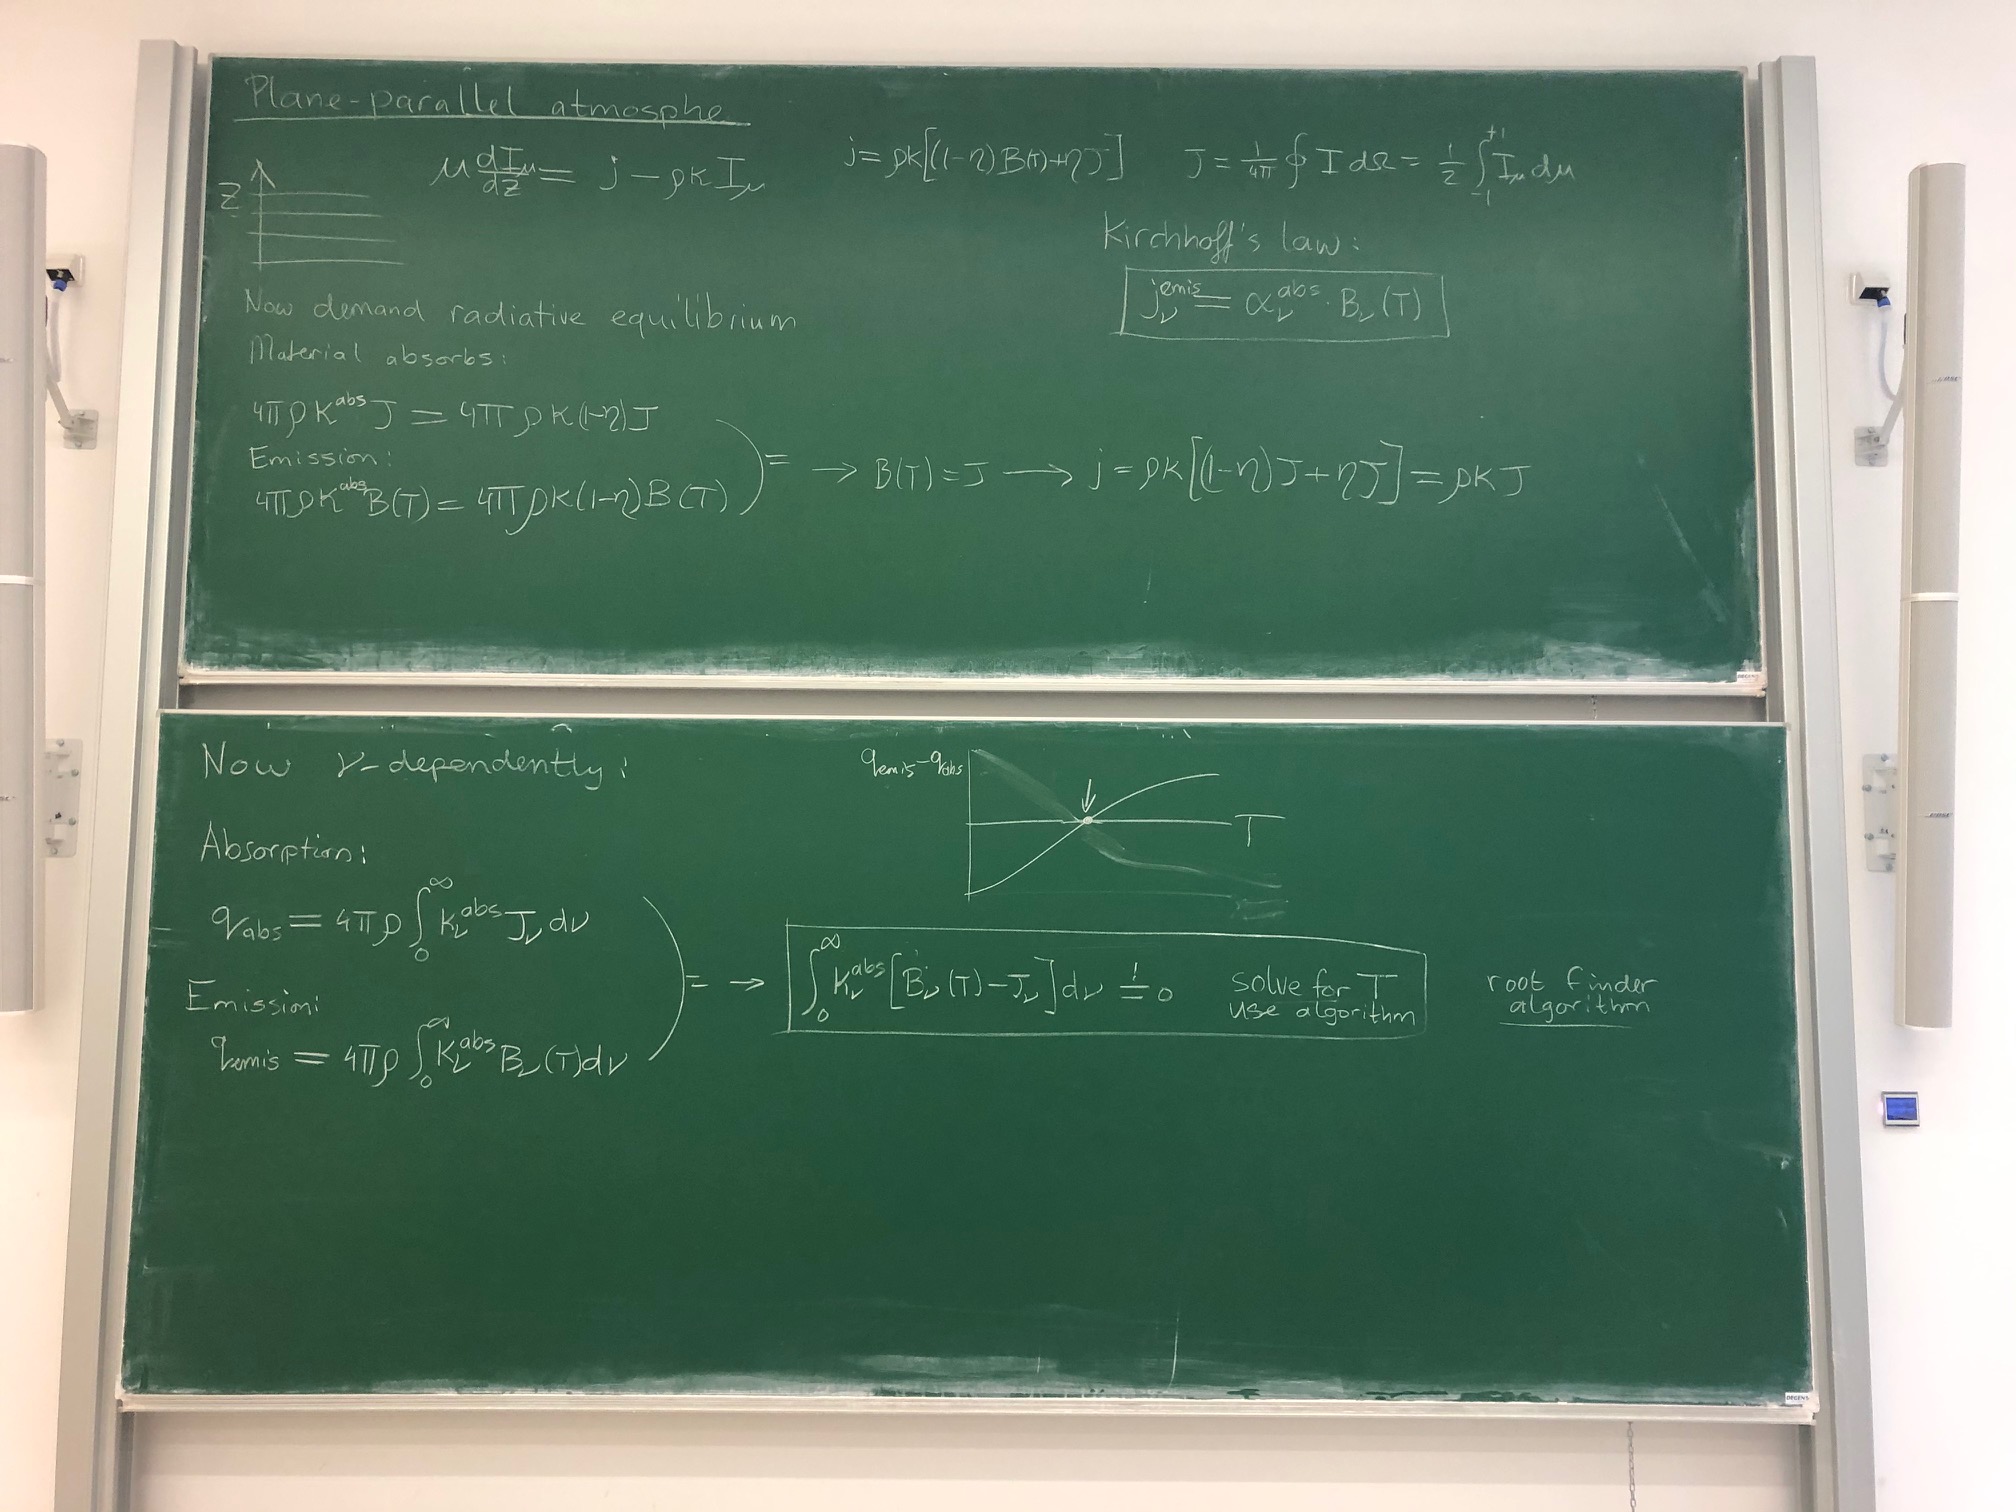 Plane-parallel atmosphe
Z
μ dI_μ/dz = j − ρκ I_μ
j = ρκ[(1−η) B(T) + ηJ]
J = 1/4π ∮ I dΩ = 1/2 ∫_{-1}^{+1} I_μ dμ
Kirchhoff's law:
j_ν^{emis} = α_ν^{abs} · B_ν(T)
Now demand radiative equilibrium
Material absorbs:
4πρκ^{abs} J = 4πρκ(1−η)J
Emission:
4πρκ^{abs} B(T) = 4πρκ(1−η)B(T)
= → B(T) = J → j = ρκ[(1−η)J + ηJ] = ρκJ
Now ν-dependently:
q_{emis} − q_{abs}
T
Absorption:
q_{abs} = 4πρ ∫_0^∞ κ_ν^{abs} J_ν dν
Emission:
q_{emis} = 4πρ ∫_0^∞ κ_ν^{abs} B_ν(T) dν
= → ∫_0^∞ κ_ν^{abs} [B_ν(T) − J_ν] dν =! 0
solve for T
use algorithm
root finder
algorithm